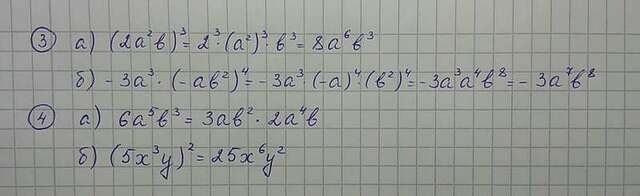 ③ а) (2a²b)³ = 2³·(a²)³·b³ = 8a⁶b³
б) -3a³·(-ab²)⁴ = -3a³·(-a)⁴·(b²)⁴ = -3a³a⁴b⁸ = -3a⁷b⁸
④ а) 6a⁵b³ = 3ab²·2a⁴b
б) (5x³y)² = 25x⁶y²